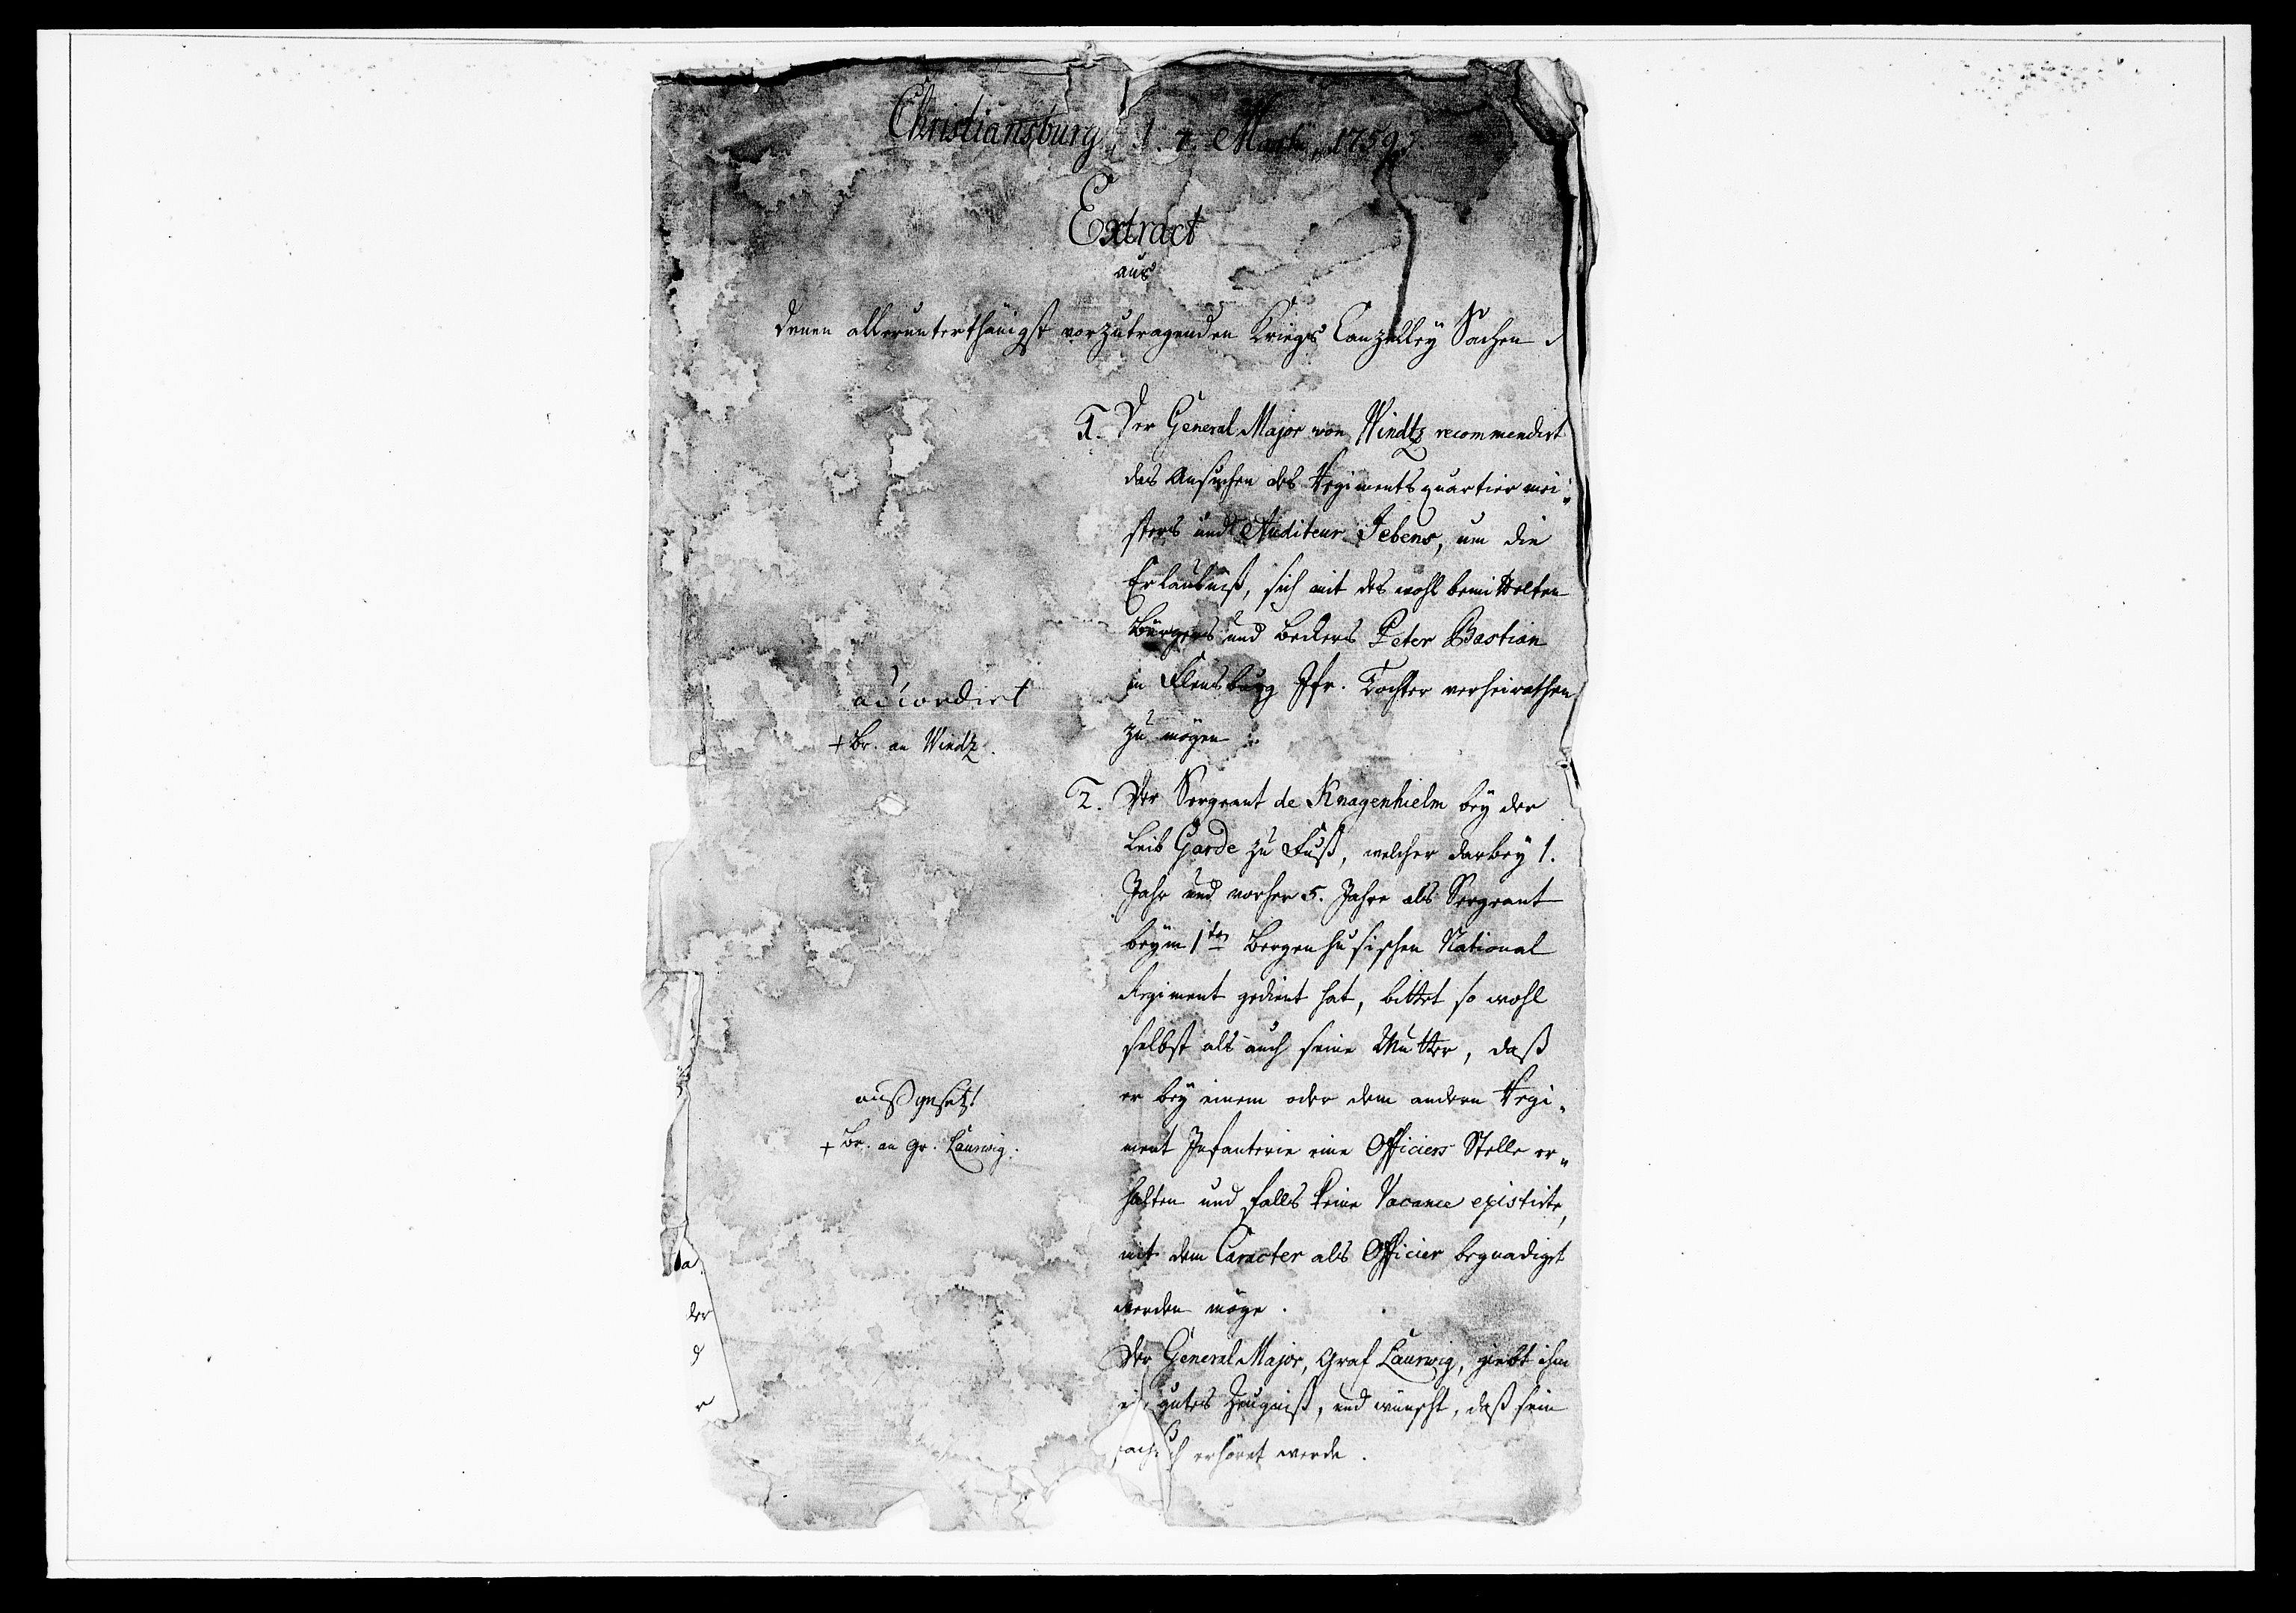 Christiansburg, d. 7. Martii 1759.
Extract
aus
denen allerunterthänigst vorzutragenden Kriegs Canzelley Sachen.
1. Der General Major von Windtz recommendirt
das Ansuchen des Regimentsquartiermei-
sters und Auditeur Jebens, um die
Erlaubniß, sich mit des wohl bemittelten
Bürgers und Beckers Peter Bastian
in Flensburg Jfr. Tochter verheirathen
zu mögen
accordirt
+ Br. an Windtz.
2. Der Sergeant de Knagenhielm bey der
Leib Garde zu Fuß, welcher darbey 1.
Jahr und vorher 5. Jahre als Sergeant
beym 1ten Bergenhusischen National
Regiment gedient hat, bittet so wohl
selbst als auch seine Mutter, daß
er bey einem oder dem andern Regi-
ment Infanterie eine Officiers Stelle er-
halten und falls keine Vacance existirte,
mit dem Caracter als Officier begnadiget
werden möge.
außgesetzt
+ Br. an Gr. Laurwig.
Der General Major, Graf Laurwig, giebt ihm
ein gutes Zeugniß, und wünscht, daß sein
erhöret werde.
der